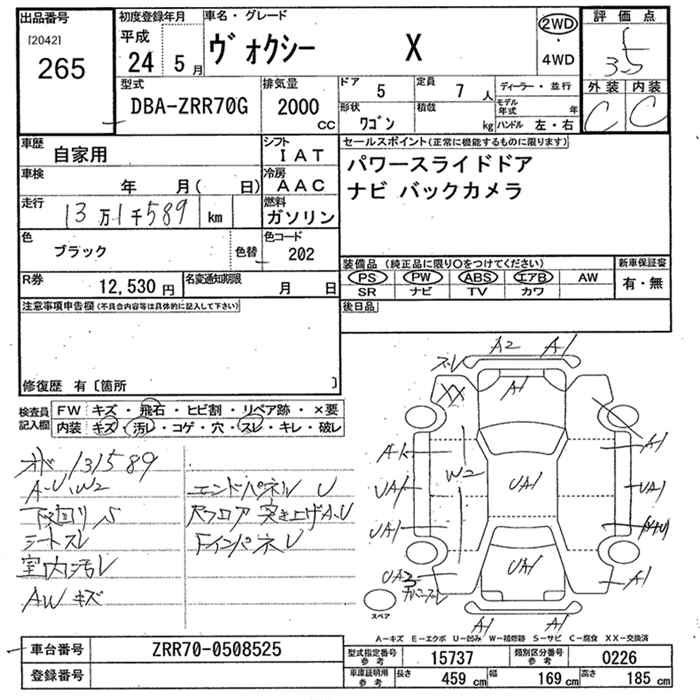 出品番号
[2042]
265
初度登録年月
平成
24 5月
車名・グレード
ヴォクシー X
2WD
・
4WD
評価点
3.5
外装 内装
C C
型式
DBA-ZRR70G
排気量
2000
CC
ドア 5
定員 7人
形状
ワゴン
積載
kg
ディーラー・並行
モデル年式 年
ハンドル 左・右
車歴
自家用
シフト
IAT
車検
年 月( 日)
冷房
AAC
走行
13万1千589 km
燃料
ガソリン
色
ブラック
色替
色コード
202
R券
12,530円
名変通知期限
月 日
セールスポイント(正常に機能するものに限ります)
パワースライドドア
ナビ バックカメラ
装備品 (純正品に限り○をつけてください)
PS PW ABS エアB AW
SR ナビ TV カワ
新車保証書
有・無
後日品
注意事項申告欄(不具合内容等は具体的に記入して下さい)
修復歴 有〔箇所 〕
検査員
記入欄
FW キズ・飛石・ヒビ割・リペア跡・×要
内装 キズ・汚レ・コゲ・穴・スレ・キレ・破レ
オド 131589
A-U,W2
下回り S
シートスレ
室内汚レ
AW キズ
エンドパネル U
バックフロア 突き上げA.U
A2 A1
ズレ
XX
A1
A1
W2
UA1
UA1
UA1
UA1
UA1
UA3
A1
A1 A1
スペア
A－キズ E－エクボ U－凹み W－補修跡 S－サビ C－腐食 XX－交換済
車台番号
ZRR70-0508525
登録番号
型式指定番号
参考
15737
類別区分番号
参考
0226
車庫証明用
参考
長さ 459 cm
幅 169 cm
高さ 185 cm